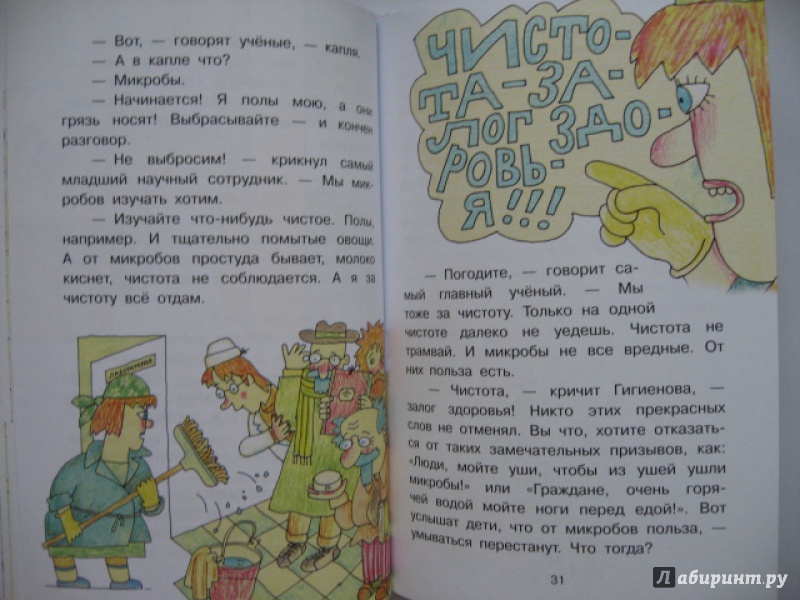 — Вот, — говорят учёные, — капля.
— А в капле что?
— Микробы.
— Начинается! Я полы мою, а они
грязь носят! Выбрасывайте — и кончен
разговор.
— Не выбросим! — крикнул самый
младший научный сотрудник. — Мы мик-
робов изучать хотим.
— Изучайте что-нибудь чистое. Полы,
например. И тщательно помытые овощи.
А от микробов простуда бывает, молоко
киснет, чистота не соблюдается. А я за
чистоту всё отдам.
ЛАБОРАТОРИЯ
ЧИСТО-
ТА-ЗА-
ЛОГ ЗДО-
РОВЬ-
Я!!!
— Погодите, — говорит са-
мый главный учёный. — Мы
тоже за чистоту. Только на одной
чистоте далеко не уедешь. Чистота не
трамвай. И микробы не все вредные. От
них польза есть.
— Чистота, — кричит Гигиенова, —
залог здоровья! Никто этих прекрасных
слов не отменял. Вы что, хотите отказать-
ся от таких замечательных призывов, как:
«Люди, мойте уши, чтобы из ушей ушли
микробы!» или «Граждане, очень горя-
чей водой мойте ноги перед едой!». Вот
услышат дети, что от микробов польза, —
умываться перестанут. Что тогда?
31
Лабиринт.ру